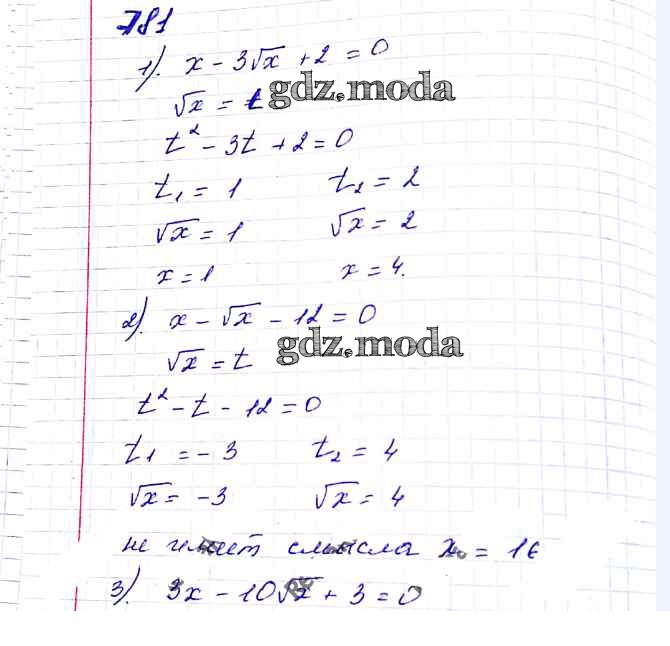 781
1). x - 3√x + 2 = 0
√x = t gdz.moda
t² - 3t + 2 = 0
t₁ = 1 t₂ = 2
√x = 1 √x = 2
x = 1 x = 4.
2). x - √x - 12 = 0
√x = t gdz.moda
t² - t - 12 = 0
t₁ = - 3 t₂ = 4
√x = -3 √x = 4
не имеет смысла x = 16
3). 3x - 10√x + 3 = 0